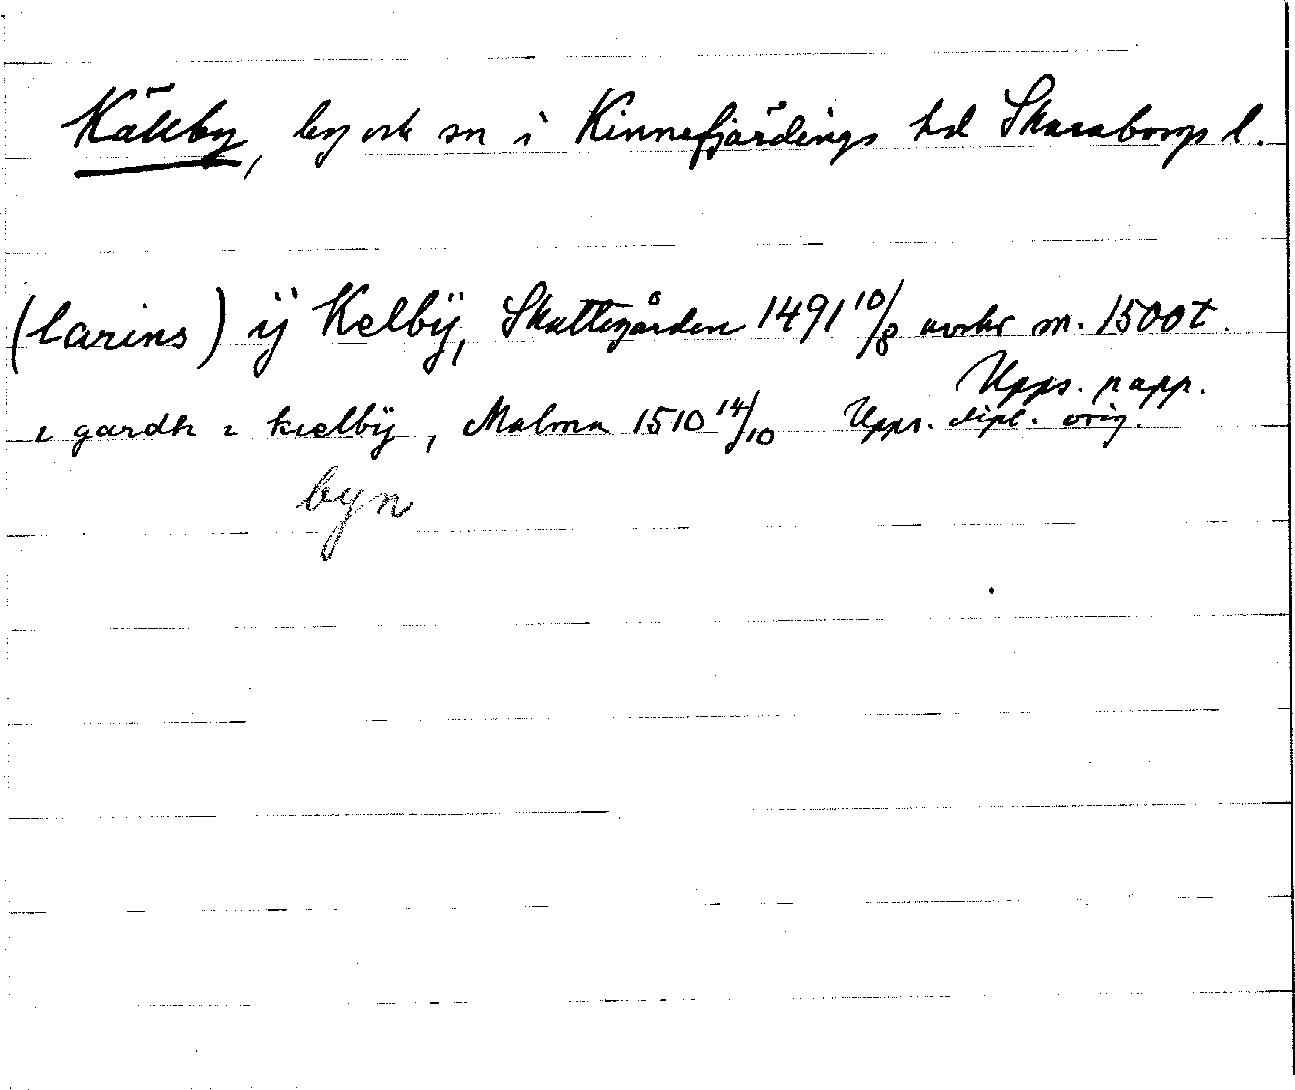 Källby, by och sn i Kinnefjärdings hd Skaraborgs l.
(larins) ij Kelbÿ, Skattegården 1491 10/8 avskr m. 1500t.
Upps. papp.
i gardh i kielbÿ, Malma 1510 14/10 Upps. dipl. orig.
byn